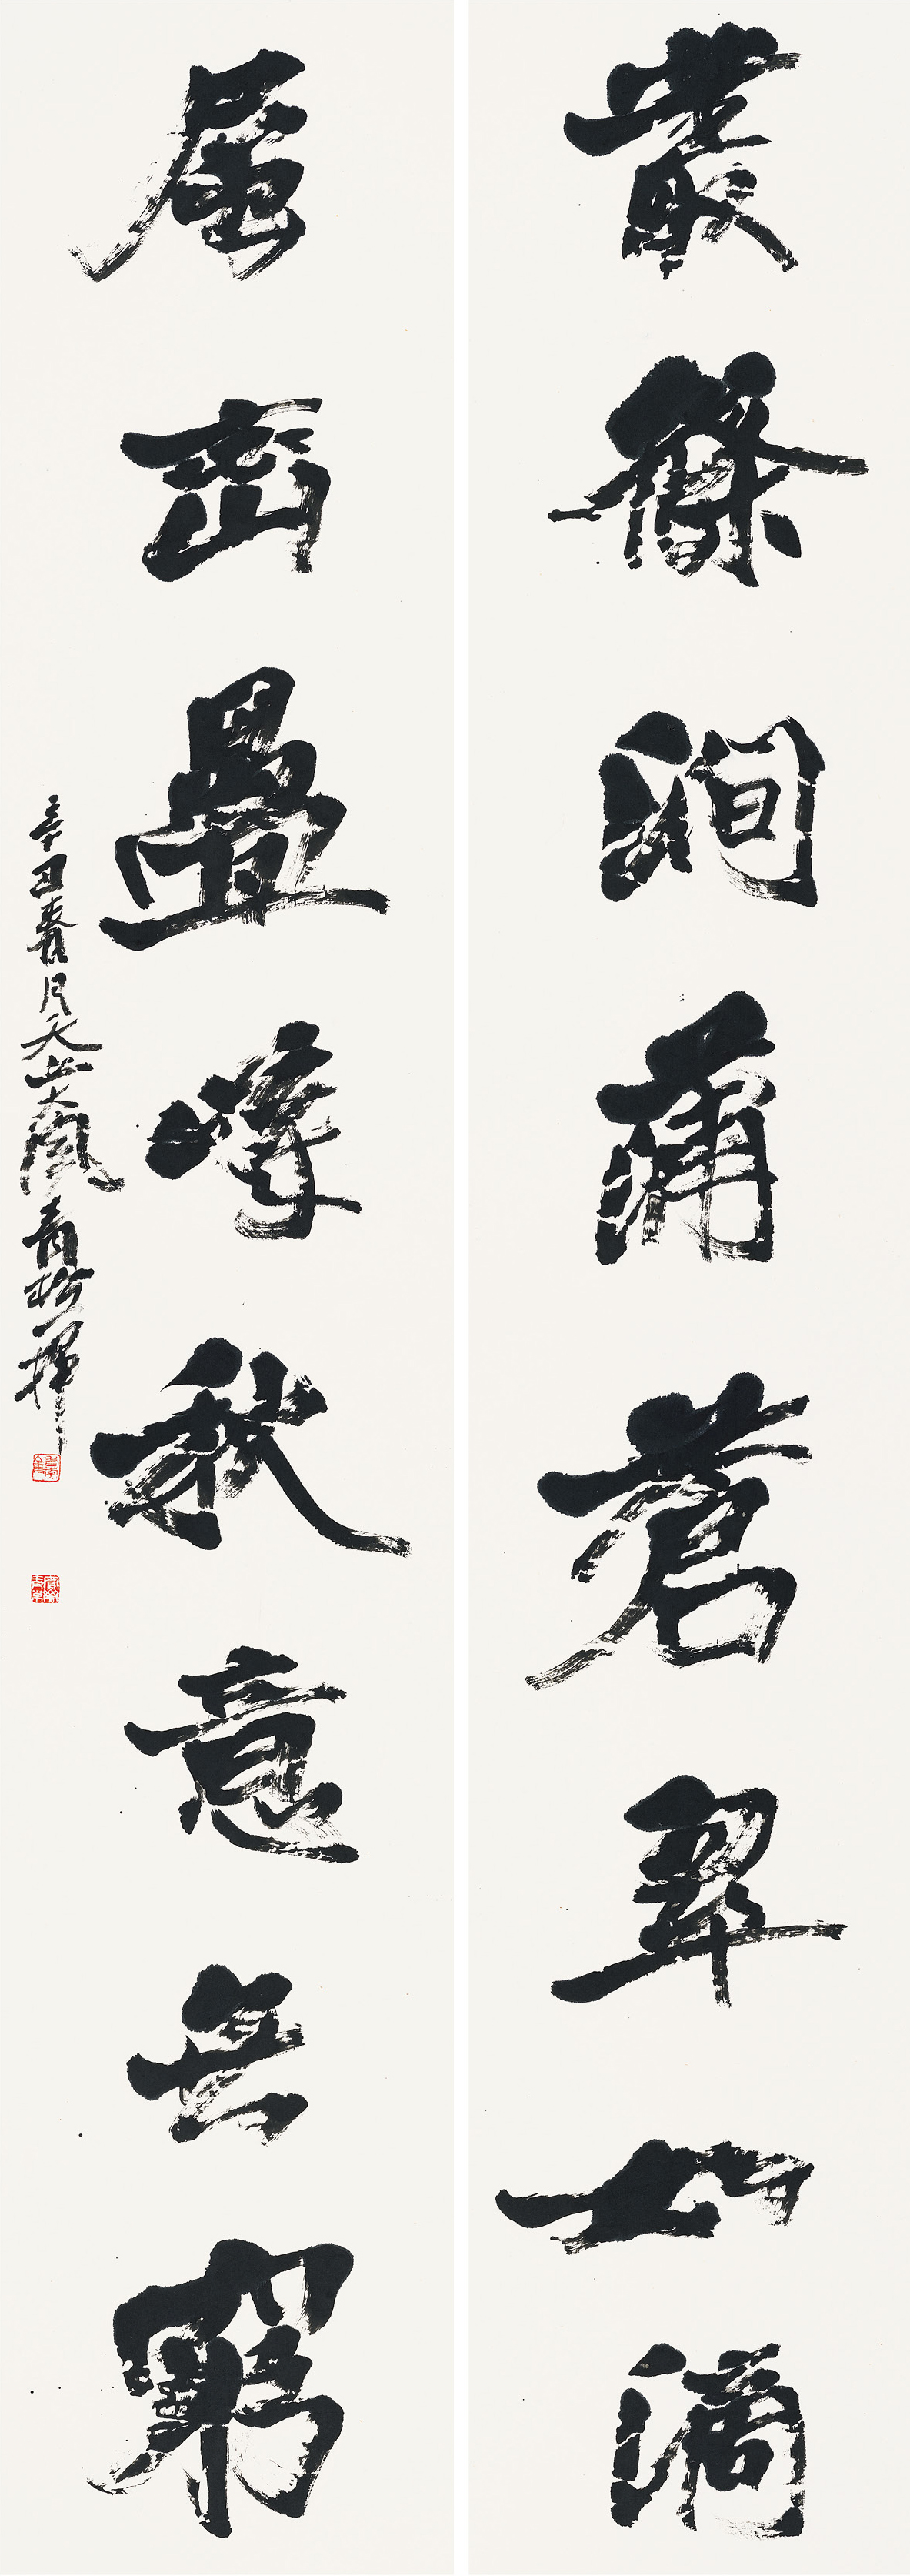 叢篠澗蒲蒼翠如滴
層巒疊嶂秋意無窮
辛丑春月天岳大風青松揮